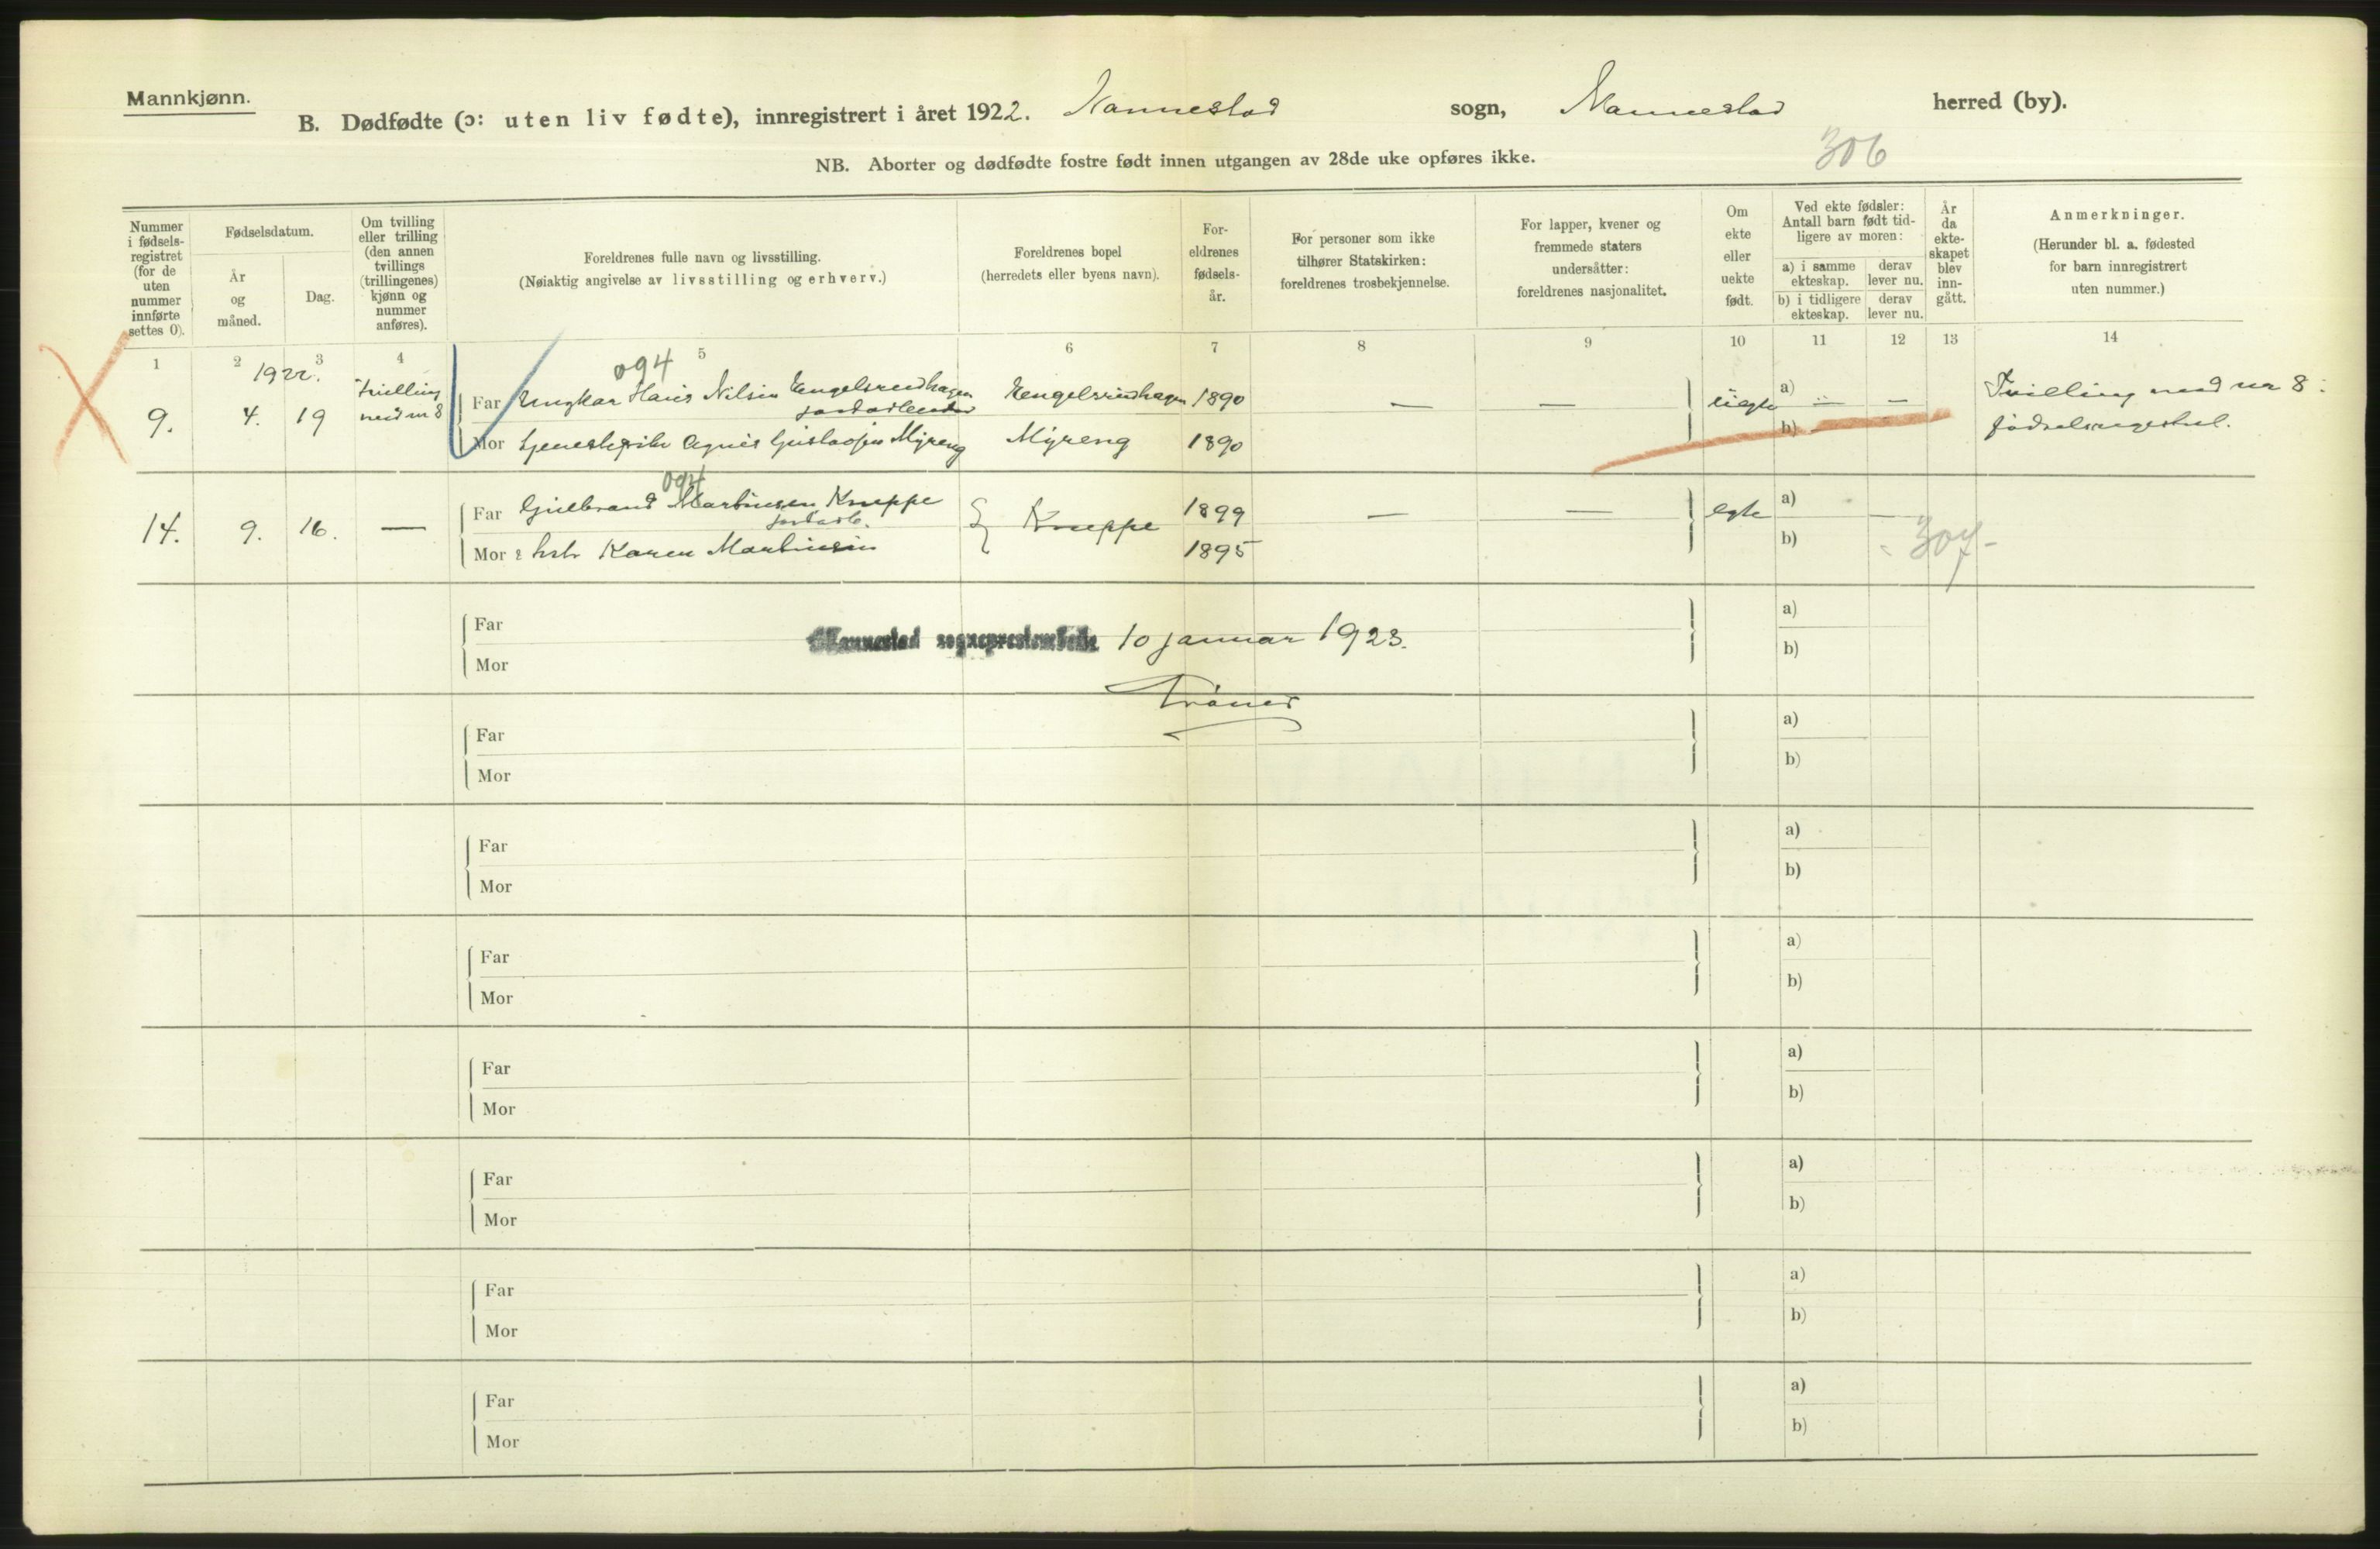 Mannkjønn.
B. Dødfødte (ɔ: uten liv fødte), innregistrert i året 1922. Nannestad sogn, Nannestad herred (by).
NB. Aborter og dødfødte fostre født innen utgangen av 28de uke opføres ikke.
306
Nummer
i fødsels-
registret
(for de
uten
nummer
innførte
settes 0).
Fødselsdatum.
År
og
måned.
Dag.
Om tvilling
eller trilling
(den annen
tvillings
(trillingenes)
kjønn og
nummer
anføres).
Foreldrenes fulle navn og livsstilling.
(Nøiaktig angivelse av livsstilling og erhverv.)
Foreldrenes bopel
(herredets eller byens navn).
For-
eldrenes
fødsels-
år.
For personer som ikke
tilhører Statskirken:
foreldrenes trosbekjennelse.
For lapper, kvener og
fremmede staters
undersåtter:
foreldrenes nasjonalitet.
Om
ekte
eller
uekte
født.
Ved ekte fødsler:
Antall barn født tid-
ligere av moren:
a) i samme
ekteskap.
derav
lever nu.
b) i tidligere
ekteskap.
derav
lever nu.
År
da
ekte-
skapet
blev
inn-
gått.
Anmerkninger.
(Herunder bl. a. fødested
for barn innregistrert
uten nummer.)
1 2 3 4 5 6 7 8 9 10 11 12 13 14
1922.
094
9. 4. 19
tvilling
med nr 8
Far Ungkar Hans Nilsen Engelsrudhagen
Engelsrudhagen 1890 — — uegte a) — —
Mor Agnes Gustavsen Myreng Myreng 1890 b)
Tvilling med nr 8 i
fødselsregistret.
094
14. 9. 16. —
Far Gulbrand Martinsen Kneppe
Kneppe 1899 — — egte a) —
Mor Karen Martinsen 1895 b)
307
Far a)
Mor b)
Nannestad sogneprestembede 10 januar 1923.
Far a)
Mor b)
Far a)
Mor b)
Far a)
Mor b)
Far a)
Mor b)
Far a)
Mor b)
Far a)
Mor b)
Far a)
Mor b)